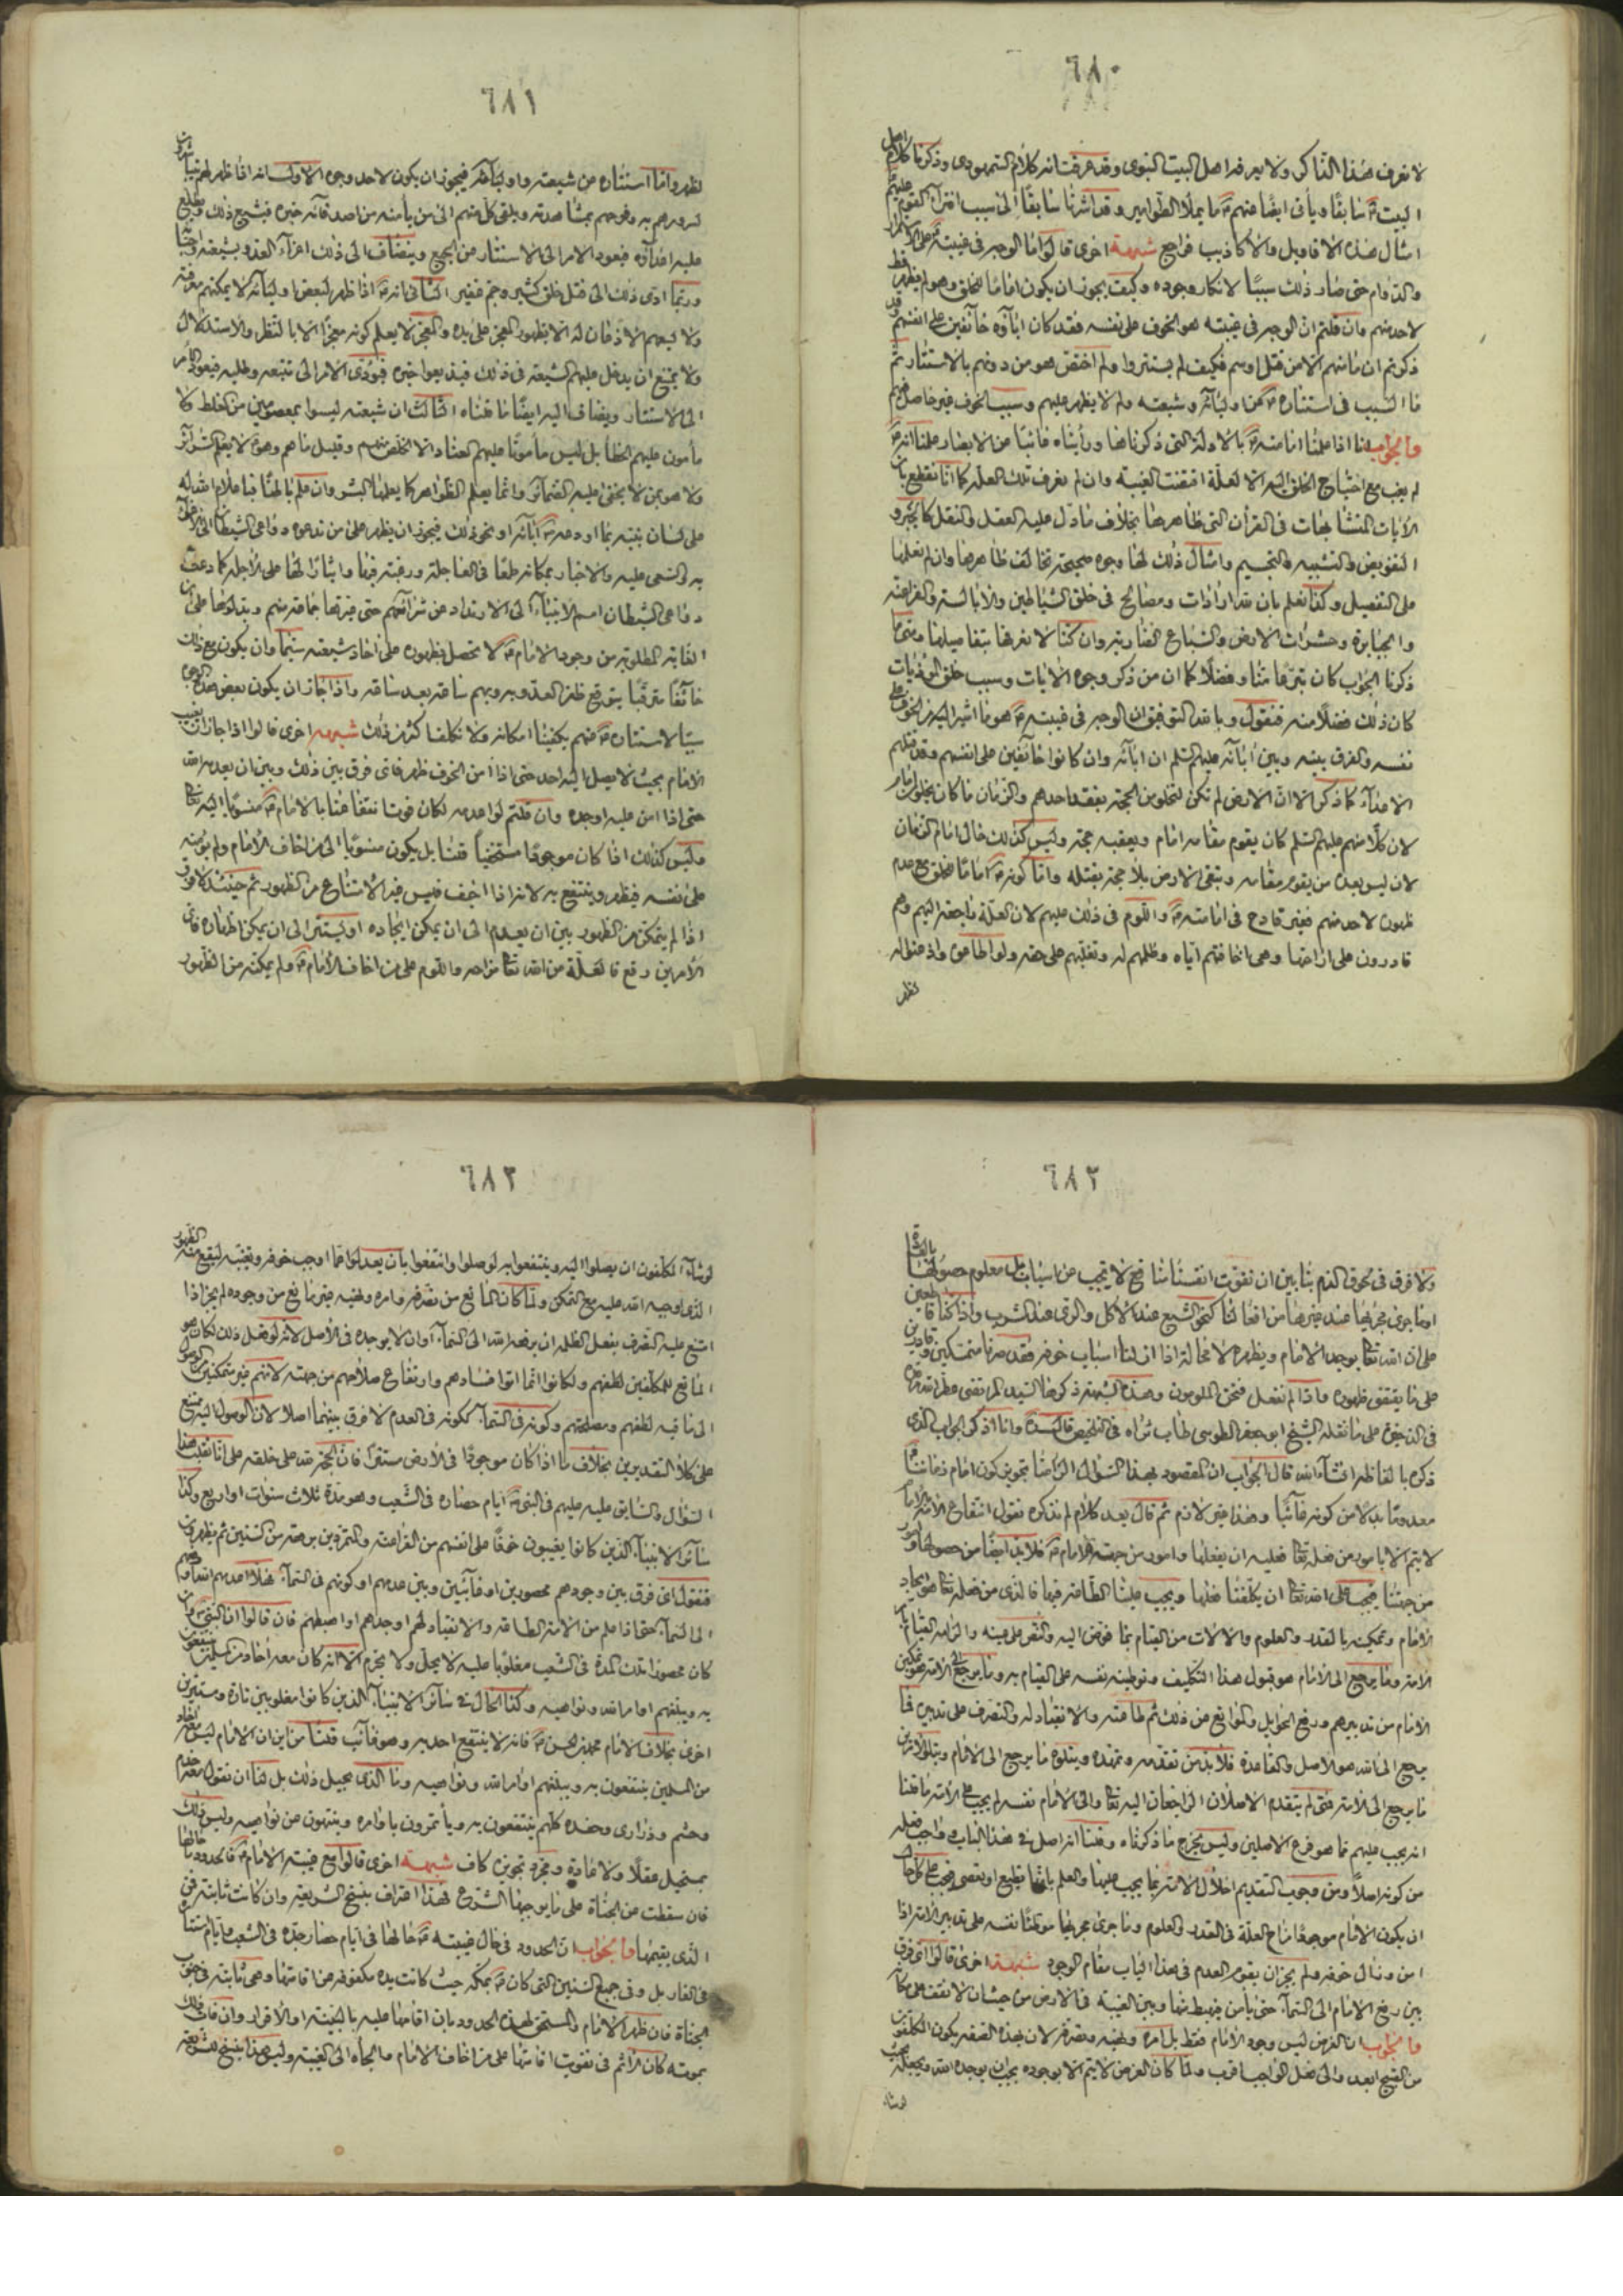 ٦٨٠
لا نعرف هذا الذاكر ولا يعرفه اهل البيت النبوى وقد عرفت انه كلام السمهودى وذكرنا كلام اهل
البيت سابقًا ويأتى ايضًا عنهم ما يملأ الطوامير وقد اشرنا سابقًا الى سبب افتراء القوم عليهم
امثال هذه الاقاويل والاكاذيب فراجع شبهة اخرى قالوا ما الوجه فى غيبته على الاستمرار
والدوام حتى صار ذلك سببًا لانكار وجوده وكيف يجوز ان يكون امامًا للخلق وهو لم يظهر قط
لاحد منهم وان قلتم ان الوجه فى غيبته هو الخوف على نفسه فقد كان اباؤه خائفين على انفسهم وقد
ذكرتم ان ما منهم الا من قتل او سم فكيف لم يستتروا ولم اختص هو من دونهم بالاستتار ثم
ما السبب فى استتاره عن اوليائه وشيعته ولم لا يظهر عليهم وسبب الخوف غير حاصل فيهم
والجواب انا اذا علمنا امامته بالادلة التى ذكرناها ورأيناه غائبًا عن الابصار علمنا انه
لم يغب مع احتياج الخلق اليه الا لعلّة اقتضت الغيبة وان لم نعرف تلك العلة كما انا نقطع بان
الايات المتشابهات فى القرآن التى ظاهرها بخلاف ما دل عليه العقل والنقل كالجبر و
التفويض والتشبيه والتجسيم وامثال ذلك لها وجوه صحيحة تخالف ظاهرها وان لم نعلمها
على التفصيل وكما نعلم بان لله ارادات ومصالح فى خلق الشياطين والابالسة والفراعنة
والجبابرة وحشرات الارض والسباع الضارية وان كنا لا نعرفها بتفاصيلها ومتى ما
ذكرنا الجواب كان تبرعًا منا وفضلًا كما ان من ذكر وجوه الايات وسبب خلق المؤذيات
كان ذلك فضلًا منه فنقول وبالله التوفيق ان الوجه فى غيبته هو ما اشير اليه من الخوف على
نفسه والفرق بينه وبين آبائه عليهم السلم ان ابائه وان كانوا خائفين على انفسهم وقد قتلهم
الاعداء كما ذكر الا ان الارض لم تكن لتخلو من الحجة بفقد احدهم والزمان ما كان يخلو من امام
لان كلًا منهم عليهم السلم كان يقوم مقامه امام ويعقبه حجة وليس كذلك حال امام الزمان
لان ليس بعده من يقوم مقامه وتبقى الارض بلا حجة بقتله واما كونه امامًا للخلق مع عدم
ظهوره لاحد منهم فغير قادح فى امامته واللوم فى ذلك عليهم لان العلّة راجعة اليهم وهم
قادرون على ازاحتها وهى اخافتهم اياه وظلمهم له وتغلبهم على حقه ولو اطاعوه واذعنوا له
لظهر
٦٨١
لظهر واما استتاره من شيعته واوليائه فيجوز ان يكون لاحد وجوه الاول انه اذا ظهر لهم
لسرورهم به وفرحهم بمشاهدته ويلقى كل منهم الى من يأمنه من اصدقائه خبره فيشيع ذلك ويطلع
عليه اعداؤه فيعود الامر الى الاستتار من الجميع وينضاف الى ذلك اغراء العدو بشيعته
وربما ادى ذلك الى قتل خلق كثير وجم غفير الثانى انه اذا ظهر لبعض اوليائه لا يمكنهم معرفته
ولا يسعهم الاذعان له الا بظهور المعجز على يده والمعجز لا يعلم كونه معجزًا الا بالنظر والاستدلال
ولا يمتنع ان يدخل عليهم الشبهة فى ذلك فيذيعوا خبره فيؤدى الامر الى تتبعه وطلبه فيعود الامر
الى الاستتار ويضاف اليه ايضًا ما قلناه الثالث ان شيعته ليسوا بمعصومين من الغلط ولا
مأمون عليهم الخطأ بل ليس مأمونًا عليهم العناد الا الخلص منهم وقليل ما هم وهو لا يعلم السرائر
ولا هو ممن لا يخفى عليه الضمائر وانما يعلم الظواهر كما يعلمها البشر وان علم باطنًا فباعلام الله له
على لسان نبيه بما اودعه آبائه او نحو ذلك فيجوز ان يظهر على من تدعوه دواعى الشيطان الى
به والسعى عليه والاخبار بمكانه طمعًا فى العاجلة ورغبة فيها وايثارًا لها على الآجلة كما دعت
دواعى الشيطان امم الانبياء الى الارتداد عن شرائعهم حتى غيرتها جماعة منهم وبدلوها على ان
الغاية المطلوبة من وجود الامام لا تحصل بظهوره على احاد شيعته سيما وان يكون مع ذلك
خائفًا مترقبًا يتوقع ظفر العدو به وبهم ساعة بعد ساعة واذا جاز ان يكون بعض هذه الوجوه
سببًا لاستتاره عنهم يكفينا امكانه ولا نكلف اكثر من ذلك شبهة اخرى قالوا اذا جاز ان يغيب
الامام بحيث لا يصل اليه احد حتى اذا امن الخوف ظهر فاى فرق بين ذلك وبين ان يعدمه الله
حتى اذا امن عليه اوجده وان قلتم لو اعدمه لكان فوت انتفاعنا بالامام منسوبًا اليه تعالى
وليس كذلك اذا كان موجودًا مستخفيًا قلنا بل يكون منسوبًا الى من اخاف الامام ولم يؤمنه
على نفسه فيظهر وينتفع به لانه اذا اخف فليس فيه الامتناع من الظهور ثم حينئذ لا فرق
اذا لم يتمكن من الظهور بين ان يعدم الى ان يمكن ايجاده او يستتر الى ان يمكن اظهاره فاى
الامرين وقع فالعلّة من الله تعالى مزاحة واللوم على من اخاف الامام ولم يمكنه من الظهور
٦٨٢
ولا فرق فى لحوق الذم بنا بين ان نفوت انفسنا منافع لا تجب عن اسباب بل معلوم حصولها بالعادة
او ما جرى مجراها عند غيرها من افعالنا كنحو الشبع عند الاكل والرى عند الشرب واذا كنا قاطعين
على ان الله تعالى يوجد الامام ويظهره لا محالة اذا ازلنا اسباب خوفه فقد صرنا متمكنين وقادرين
على ما يقتضى ظهوره واذا لم نفعل فنحن الملومون وهذه الشبهة ذكرها السيد المرتضى عطر الله مرقده
فى الذخيرة على ما نقله الشيخ ابو جعفر الطوسى طاب ثراه فى التلخيص قال السيد وانا اذكر الجواب الذى
ذكره بالفاظه انشاء الله قال الجواب ان المقصود بهذا السؤال الزامنا تجويز كون امام زماننا
معدومًا بدلًا من كونه غائبًا وهذا غير لازم ثم قال بعد كلام لم نذكره نقول انتفاع الامة بالامام
لا يتم الا بامور من فعله تعالى فعليه ان يفعلها وامور من جهة الامام فلا بد ايضًا من حصولها وامور
من جهتنا فيجب على الله تعالى ان يكلفنا فعلها ويجب علينا الطاعة فيها فالذى من فعله تعالى هو ايجاد
الامام وتمكينه بالقدر والعلوم والالات من القيام بما فوض اليه والنص على عينه والزامه القيام بامر
الامة وما يرجع الى الامام هو قبول هذا التكليف وتوطينه نفسه على القيام به وما يرجع الى الامة هو تمكين
الامام من تدبيرهم ورفع الحوايل والموانع عن ذلك ثم طاعته والانقياد له والتصرف على تدبيره فما
يرجع الى الله هو الاصل والقاعدة فلا بد من تقدمه وتمهده ويتلوه ما يرجع الى الامام ويتلو الامرين
ما يرجع الى الامة فمتى لم يتقدم الاصلان الراجعان اليه تعالى والى الامام نفسه لم يجب على الامة ما قلنا
انه يجب عليهم مما هو فرع الاصلين وليس يخرج ما ذكرناه وقلنا انه اصل فى هذا الباب واجب فعله
من كونه اصلًا ومن وجوب التقديم اخلال الامة بما يجب عليها والعلم بانها تطيع او تعصى فيجب على كل حال
ان يكون الامام موجودًا مزاح العلة فى القدر والعلوم وما جرى مجراها موطنًا نفسه على تدبير الامة اذا
امن وزال خوفه ولم يجز ان يقوم العدم فى هذا الباب مقام الوجود شبهة اخرى قالوا اى فرق
بين رفع الامام الى السماء حتى يأمن فيهبط منها وبين الغيبة فى الارض من حيث ان لا نقف على مكانه
والجواب ان الغرض ليس وجود الامام فقط بل امره ونهيه وتصرفه لان بهذه الصفة يكون المكلفون
من القبيح ابعد والى فعل الواجب اقرب ولما كان الغرض لا يتم الا بوجوده يجب ان يوجده الله ويجعله بحيث
لو شاء
٦٨٣
لو شاء المكلفون ان يصلوا اليه وينتفعوا به لوصلوا وانتفعوا بان يعدلوا عما اوجب خوفه وتغيبه ليقع منه الظهور
الذى اوجبه الله عليه مع التمكن ولما كان المانع من تصرفه وامره ونهيه غير مانع من وجوده لم يجز اذا
امتنع عليه التصرف بفعل الظلمة ان يرفعه الله الى السماء او ان لا يوجده فى الاصل لانه لو فعل ذلك لكان هو
المانع للمكلفين لطفهم ولكانوا انما اتوا فسادهم وارتفاع صلاحهم من جهته لانهم غير متمكنين من الوصول
الى ما فيه لطفهم ومصلحتهم وكونه فى السماء ككونه فى العدم لا فرق بينهما اصلًا لان الوصول اليه ممتنع
على كلا التقديرين بخلاف ما اذا كان موجودًا فى الارض مستقرًا فان الحجة لله على خلقه على انا نقلب هذا
السؤال والسابق عليه عليهم فى النبى ايام حصاره فى الشعب وهو مدة ثلاث سنوات او اربع وكذا
سائر الانبياء الذين كانوا يغيبون خوفًا على انفسهم من الفراعنة والمتمردين برهة من السنين ثم يظهرون
فنقول اى فرق بين وجودهم محصورين او غائبين وبين عدمهم او كونهم فى السماء فهلا اعدمهم الله او رفعهم
الى السماء حتى اذا علم من الامة الطاعة والانقياد لهم اوجدهم او اهبطهم فان قالوا ان النبى وان
كان محصورًا تلك المدة فى الشعب مغلوبًا عليه لا يحل ولا يحرم الا انه كان معه احاد من المسلمين ينتفعون
به ويبلغهم اوامر الله ونواهيه وكذا الحال فى سائر الانبياء الذين كانوا مغلوبين تارة ومستترين
اخرى بخلاف الامام محمد بن الحسن فانه لا ينتفع احد به وهو غائب قلنا من اين ان الامام ليس معه احاد
من المسلمين ينتفعون به ويبلغهم اوامر الله ونواهيه وما الذى يحيل ذلك بل لنا ان نقول معه خدم
وحشم وذرارى وحفدة كلهم ينتفعون به ويأتمرون باوامره وينتهون عن نواهيه وليس ذلك
بمستحيل عقلًا ولا عادة ومجرد تجويزه كاف شبهة اخرى قالوا مع غيبة الامام فالحدود ما حالها
فان سقطت عن الجناة على ما يوجبها الشرع فهذا اعتراف بنسخ الشريعة وان كانت ثابتة فمن
الذى يقيمها والجواب ان الحدود فى حال غيبته حالها فى ايام حصار جده فى الشعب وايام استتاره
فى الغار بل وفى جميع السنين التى كان بمكة حيث كانت يده مكفوفة عن اقامتها وهى ثابتة فى جنوب
الجناة فان ظهر الامام والمستحق لهذه الحدود باق اقامها عليه بالبينة او الاقرار وان فات ذلك
بموته كان الاثم فى تفويت اقامتها على من اخاف الامام والجأه الى الغيبة وليس هذا بنسخ للشريعة